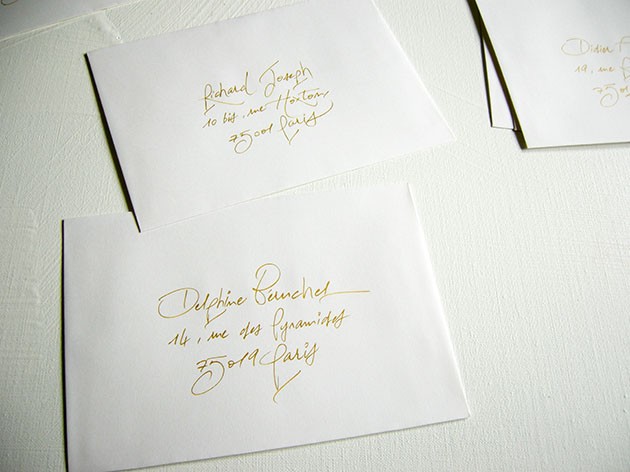 Richard Joseph
10 bis, rue Hoxton
75001 Paris
Delphine Péruchet
14, rue des Pyramides
75019 Paris
Didier
19, rue
750